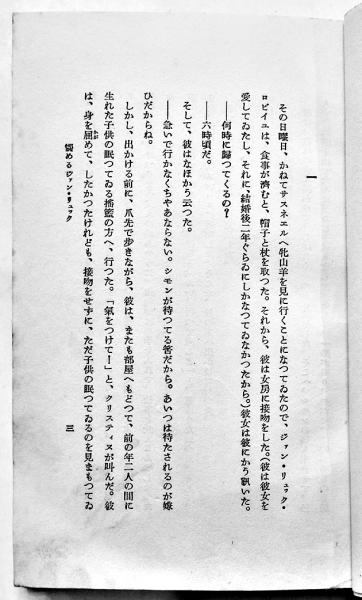 一
その日曜日、かねてサスネエルへ牝山羊を見に行くことになつてゐたので、ジァン・リュック・
ロビイユは、食事が濟むと、帽子と杖を取つた。それから、彼は女房に接吻をした。(彼は彼女を
愛してゐたし、それに、結婚後二年ぐらゐにしかなつてゐなかつたから。)彼女は彼にかう訊いた。
――何時に歸つてくるの?
――六時頃だ。
そして、彼はなほかう云つた。
――急いで行かなくちやあならない。シモンが待つてる筈だから。あいつは待たされるのが嫌
ひだからね。
しかし、出かける前に、爪先で歩きながら、彼は、またも部屋へもどつて、前の年二人の間に
生れた子供の眠つてゐる搖籃の方へ、行つた。「氣をつけて!」と、クリスティヌが叫んだ。彼
は、身を屈めて、したかつたけれども、接吻をせずに、ただ子供の眠つてゐるのを見まもつてゐ
惱めるジァン・リュック
三